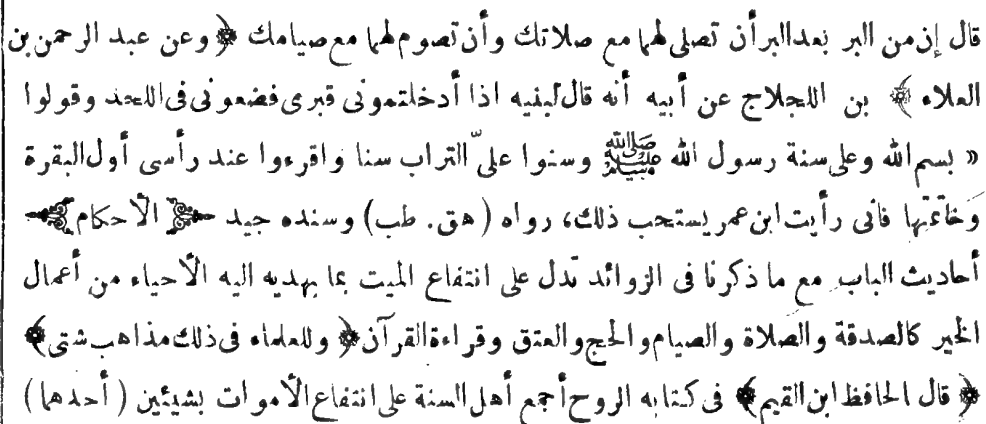 قال إن من البر بعد البر أن تصلى لهما مع صلاتك وأن تصوم لهما مع صيامك ﴿ وعن عبد الرحمن بن
العلاء ﴾ بن اللجلاج عن أبيه أنه قال لبنيه اذا أدخلتمونى قبرى فضعونى فى اللحد وقولوا
« بسم الله وعلى سنة رسول الله ﷺ وسنوا علىّ التراب سنا واقرءوا عند رأسى أول البقرة
وخاتمتها فانى رأيت ابن عمر يستحب ذلك، رواه ( هق. طب ) وسنده جيد ﴿ الأحكام ﴾
أحاديث الباب مع ما ذكرنا فى الزوائد تدل على انتفاع الميت بما يهديه اليه الأحياء من أعمال
الخير كالصدقة والصلاة والصيام والحج والعتق وقراءة القرآن ﴿ وللعلماء فى ذلك مذاهب شتى ﴾
﴿ قال الحافظ ابن القيم ﴾ فى كتابه الروح أجمع أهل السنة على انتفاع الأموات بشيئين ( أحدهما )